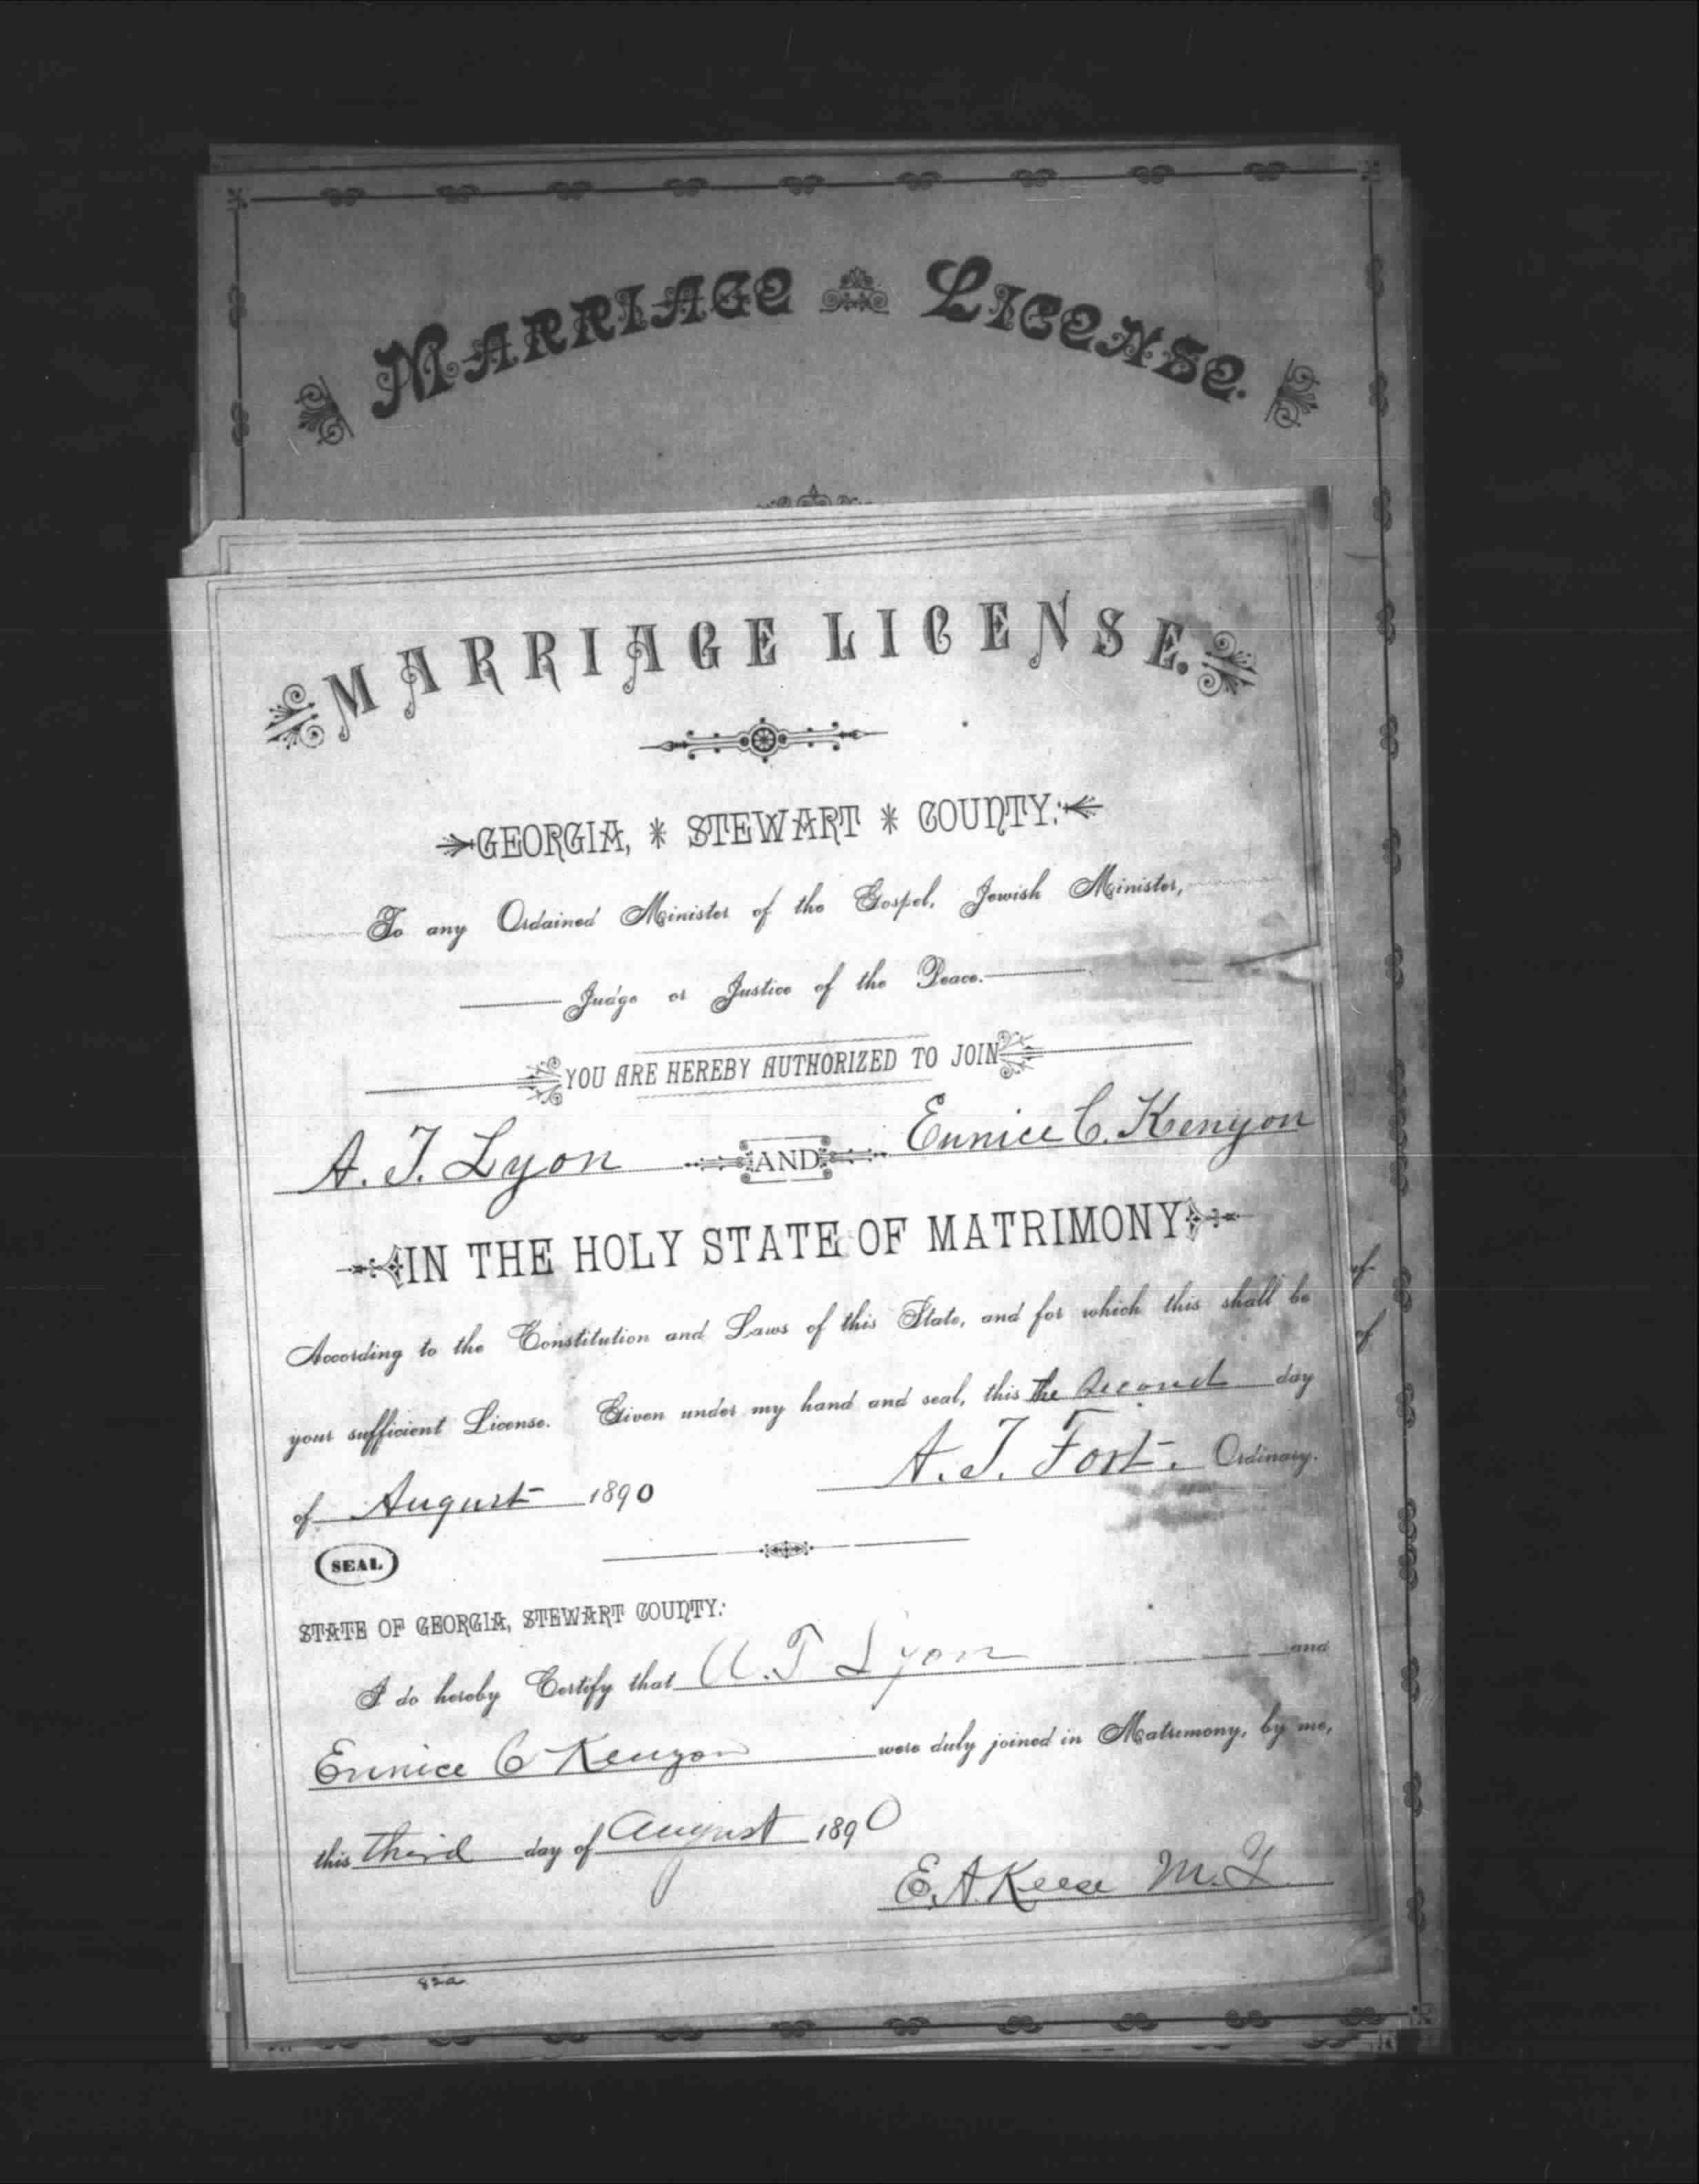 MARRIAGE LICENSE.
MARRIAGE LICENSE.
GEORGIA, * STEWART * COUNTY:
To any Ordained Minister of the Gospel, Jewish Minister,
Judge or Justice of the Peace.
YOU ARE HEREBY AUTHORIZED TO JOIN
A. T. Lyon AND Eunice C. Kenyon
IN THE HOLY STATE OF MATRIMONY
According to the Constitution and Laws of this State, and for which this shall be
your sufficient License. Given under my hand and seal, this the second day
of August 1890 A. T. Fort. Ordinary.
SEAL
STATE OF GEORGIA, STEWART COUNTY:
I do hereby Certify that A. T Lyon and
Eunice C Kenyon were duly joined in Matrimony, by me,
this third day of August 1890
E. A. Keese M. G.
82a
of
of